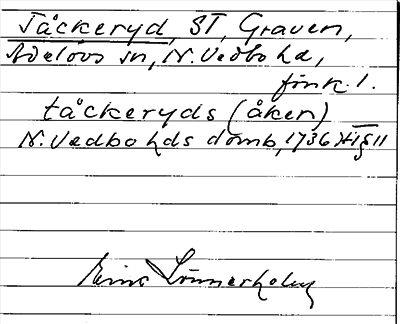 Tåckeryd, ST, Graven,
Adelövs sn, N. Vedbo hd,
Jönk. l.
tåckeryds (åker)
N. Vedbo hds domb, 1736 Ht § 11
Einar Lönnerholm